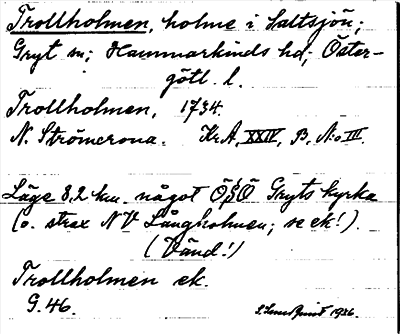 Trollholmen, holme i Saltsjön;
Gryt sn; Hammarkinds hd; Öster-
götl. l.
Trollholmen, 1734.
N. Strömcrona. Kr. A, XXIV, B, N:o III.
Läge 8,2 km. något ÖSÖ Gryts kyrka
(o. strax NV Långholmen; se ek!).
(Vänd!)
Trollholmen ek.
G. 46.
1926.